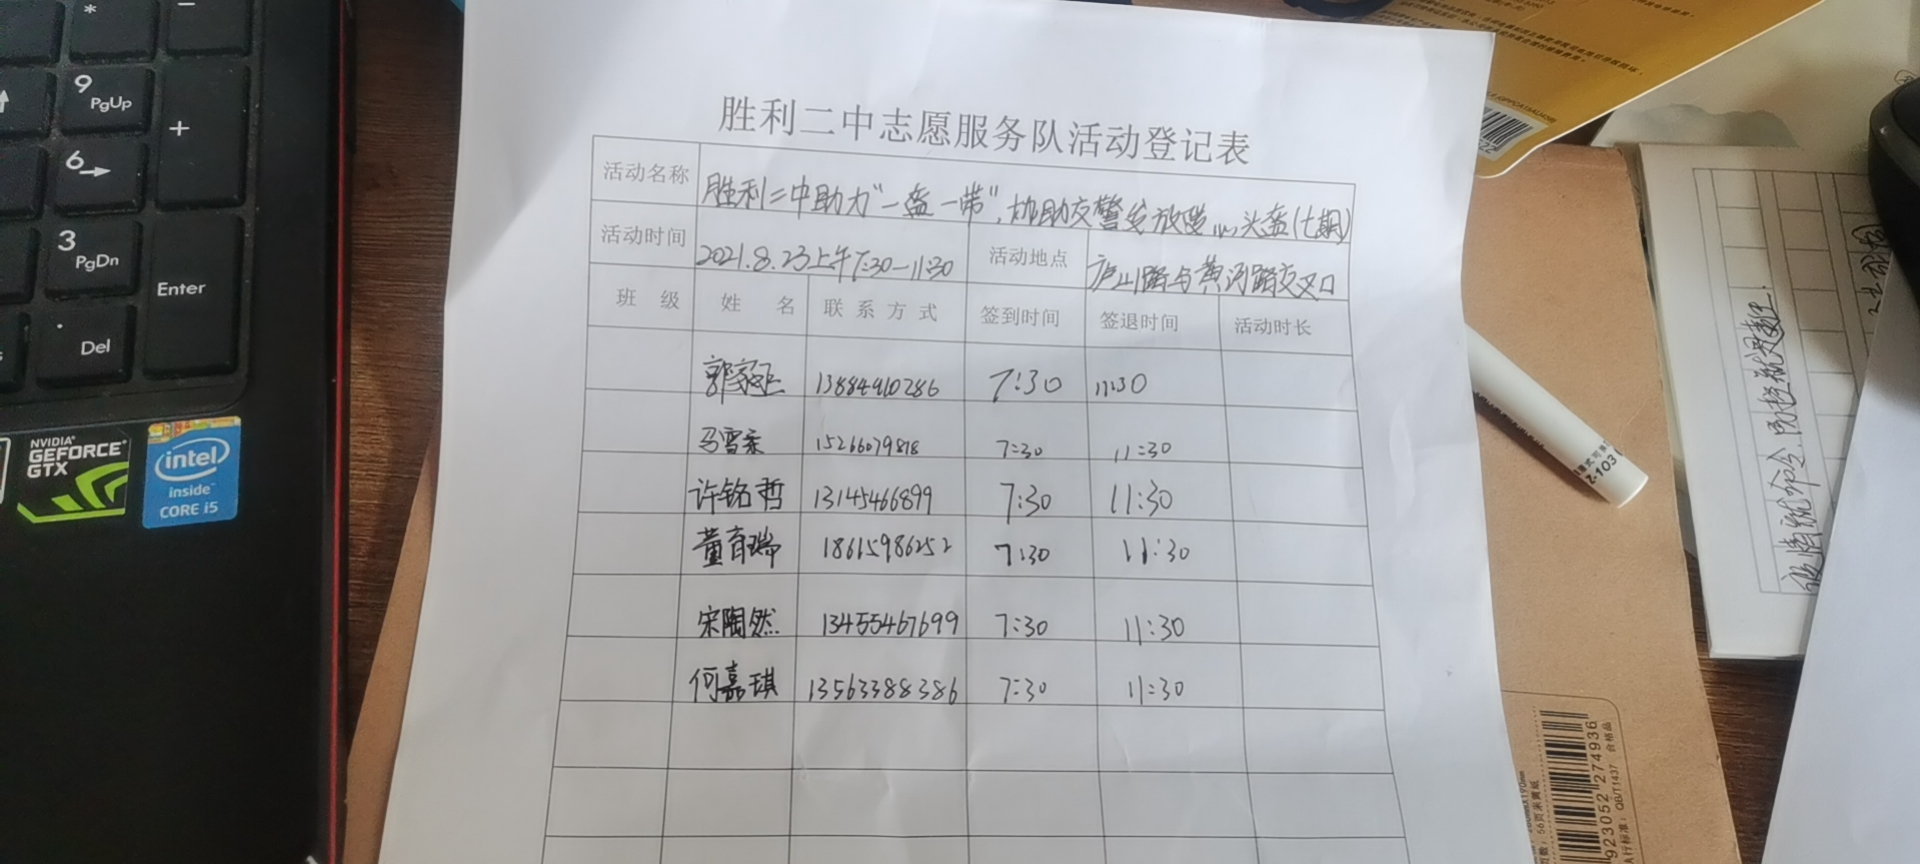 *
−
9
PgUp
+
6→
3
PgDn
Enter
.
Del
NVIDIA
GEFORCE
GTX
intel
inside
CORE i5
胜利二中志愿服务队活动登记表
活动名称 胜利二中助力"一盔一带",协助交警发放 头盔(七期)
活动时间 2021.8.23上午7:30—11:30 活动地点 庐山路与黄河路交叉口
班 级 姓 名 联系方式 签到时间 签退时间 活动时长
郭家 13884910286 7:30 11:30
马雪 15266079818 7:30 11:30
许铭哲 13145466899 7:30 11:30
董育瑞 18615986252 7:30 11:30
宋陶然 13455467699 7:30 11:30
何嘉琪 13563388386 7:30 11:30
疫情就命令,防控就是责任.
Z-103
56页
923052 274936
QB/T1437 合格品